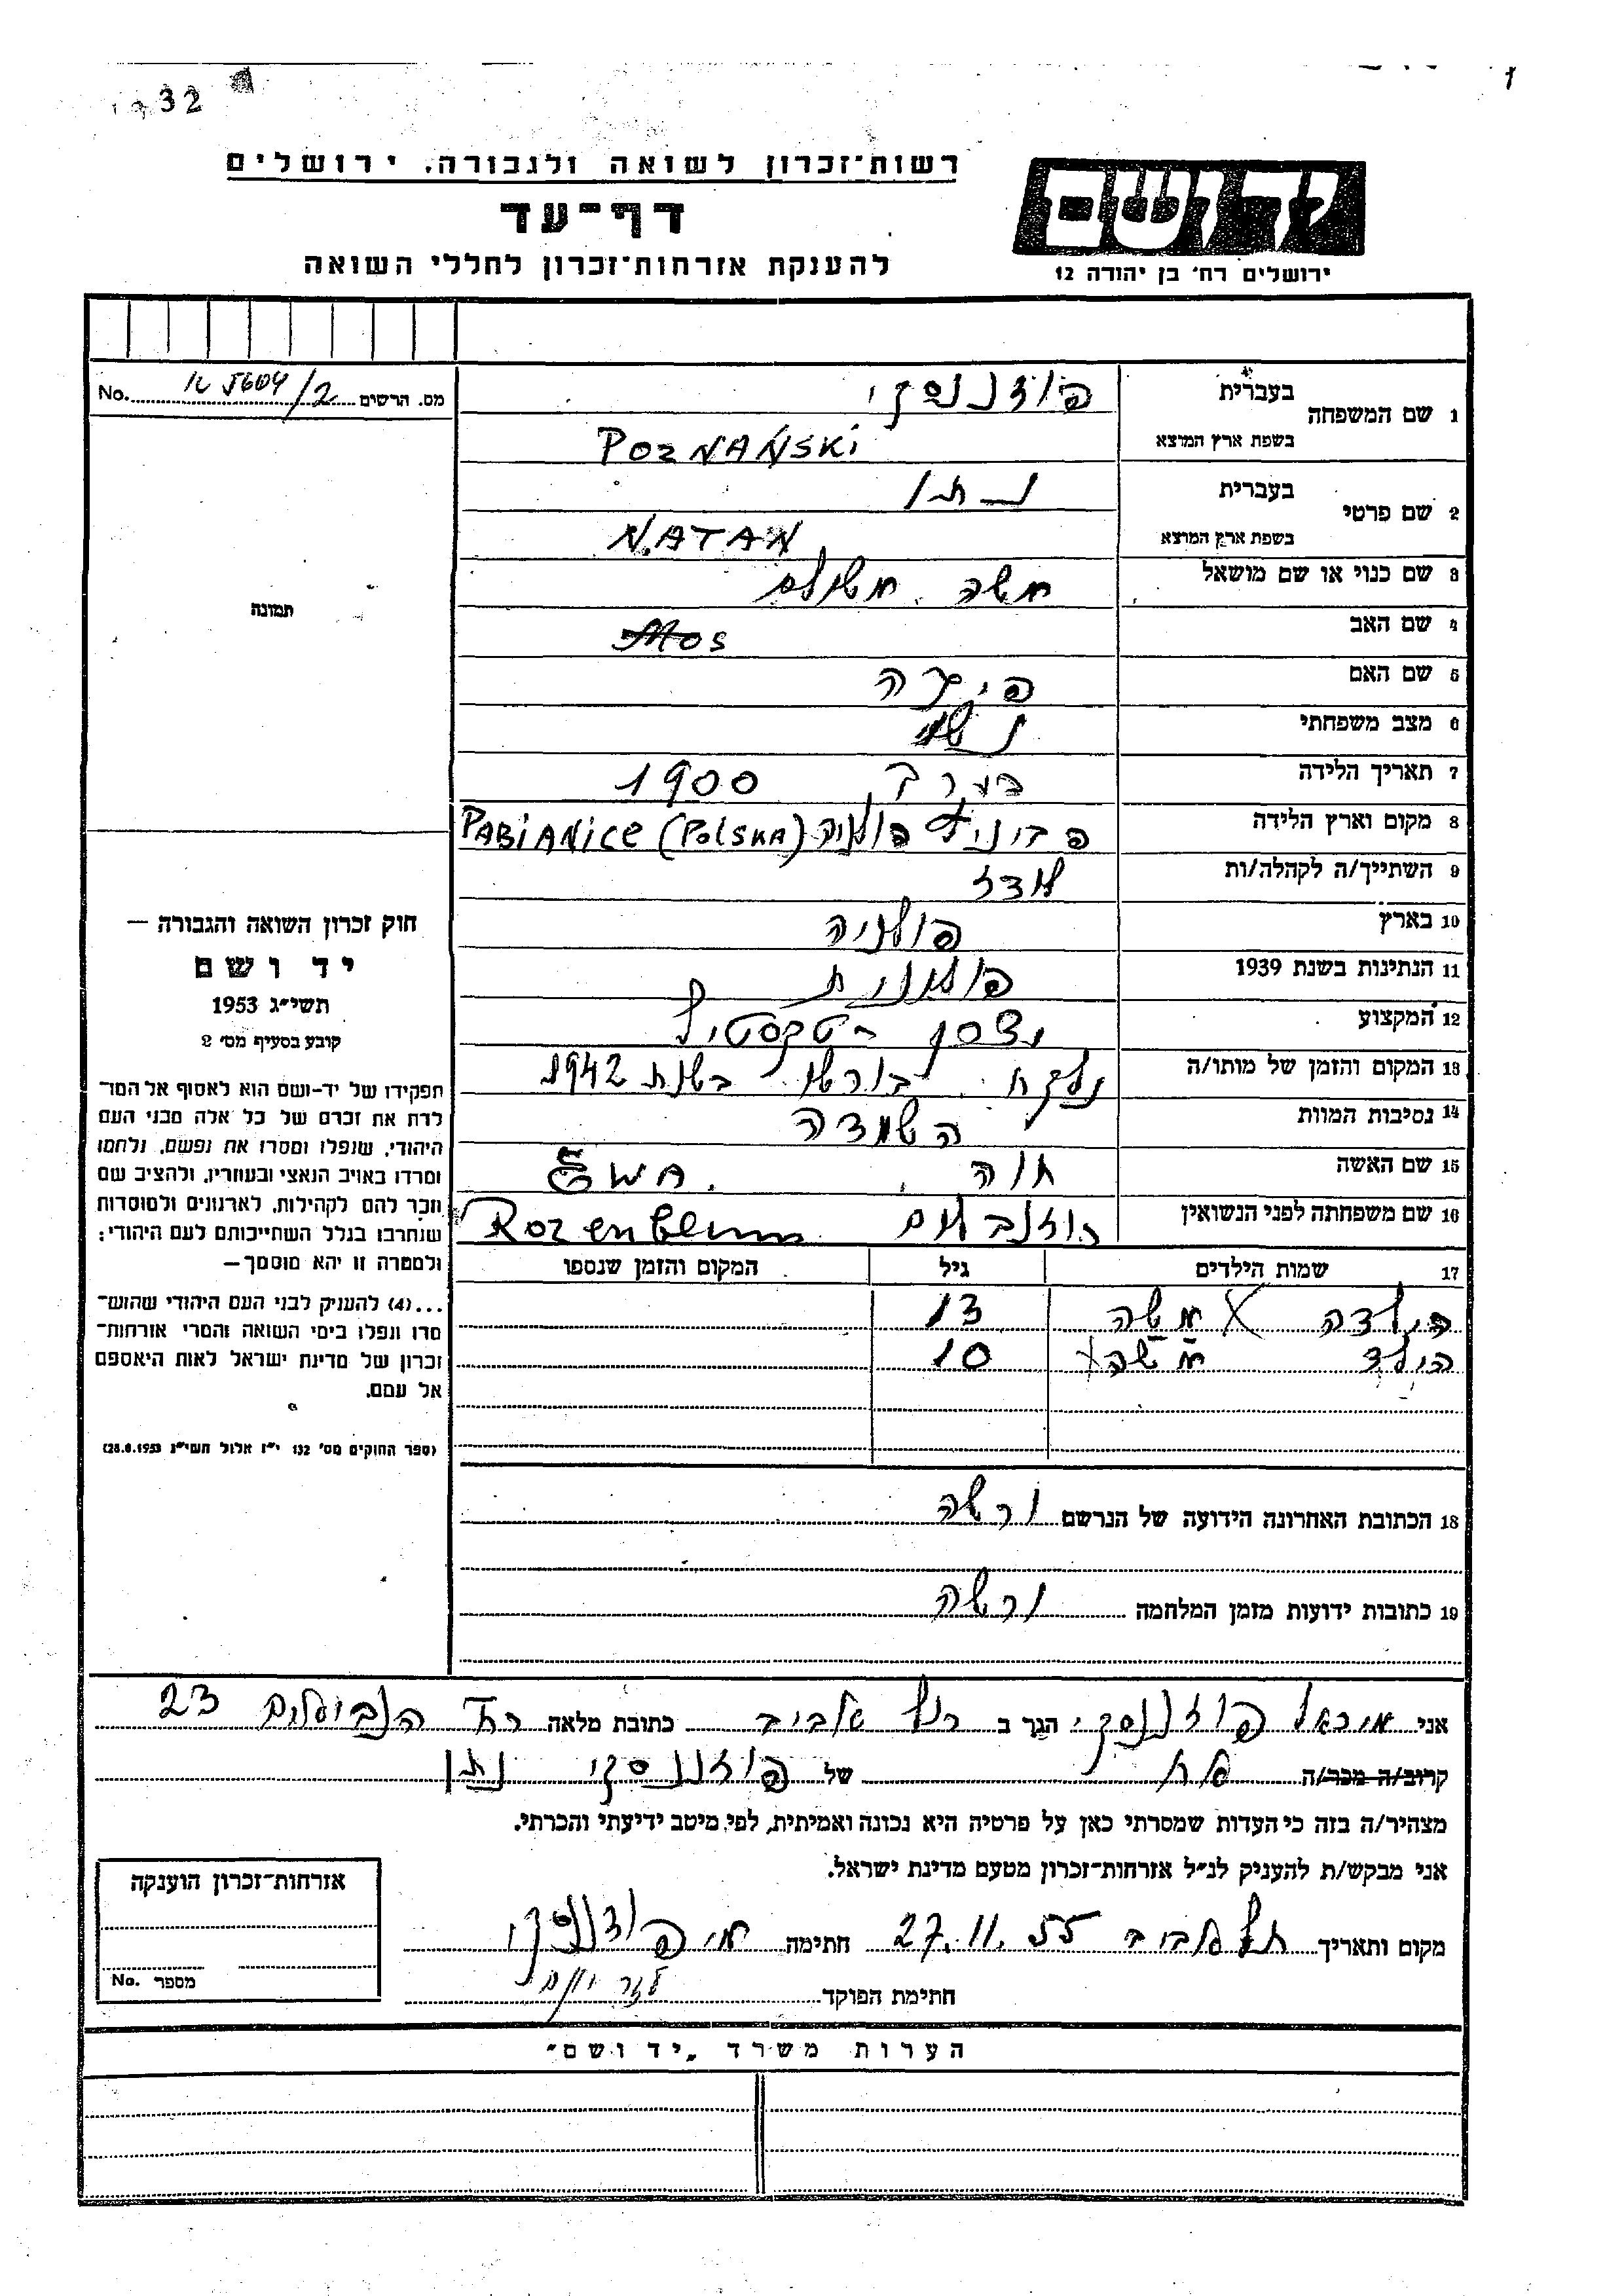 32
רשות־זכרון לשואה ולגבורה, ירושלים
דף־עד
להענקת אזרחות־זכרון לחללי השואה
ירושלים רח' בן יהודה 12
מס. הרשים No.
1 שם המשפחה בעברית פוזננסקי
בשפת ארץ המוצא POZNAŃSKI
2 שם פרטי בעברית נתן
בשפת ארץ המוצא NATAN
3 שם כנוי או שם מושאל
4 שם האב
5 שם האם
6 מצב משפחתי נשוי
7 תאריך הלידה בערך 1900
8 מקום וארץ הלידה פביניץ פולניה PABIANICE (POLSKA)
9 השתייך/ה לקהלה/ות לודז
10 בארץ פולניה
11 הנתינות בשנת 1939 פולנית
12 המקצוע יצרן טקסטיל
13 המקום והזמן של מותו/ה בשנת 1942
14 נסיבות המוות השמדה
15 שם האשה חוה EWA
16 שם משפחתה לפני הנשואין רוזנבלום Rozenblum
17 שמות הילדים גיל המקום והזמן שנספו
הילדה 13
הילד 10
18 הכתובת האחרונה הידועה של הנרשם ורשה
19 כתובות ידועות מזמן המלחמה ורשה
תמונה
חוק זכרון השואה והגבורה —
יד ושם
תשי״ג 1953
קובע בסעיף מס' 2
תפקידו של יד-ושם הוא לאסוף אל המו־
לדת את זכרם של כל אלה מבני העם
היהודי, שנפלו ומסרו את נפשם, נלחמו
ומרדו באויב הנאצי ובעוזריו, ולהציב שם
וזכר להם לקהילות, לארגונים ולמוסדות
שנחרבו בגלל השתייכותם לעם היהודי;
ולמטרה זו יהא מוסמך—
...(4) להעניק לבני העם היהודי שהוש־
מדו ונפלו בימי השואה והמרי אזרחות־
זכרון של מדינת ישראל לאות היאספם
אל עמם.
(ספר החוקים מס' 132 י״ז אלול תשי״ג 28.8.1953)
אני פוזננסקי הגר ב תל אביב כתובת מלאה רח' 23
קרוב/ה מכר/ה אח של פוזננסקי נתן
מצהיר/ה בזה כי העדות שמסרתי כאן על פרטיה היא נכונה ואמיתית, לפי מיטב ידיעתי והכרתי.
אני מבקש/ת להעניק לנ״ל אזרחות־זכרון מטעם מדינת ישראל.
מקום ותאריך תל אביב 27.11.55 חתימה פוזננסקי
חתימת הפוקד
אזרחות־זכרון הוענקה
מספר No.
הערות משרד „יד ושם״